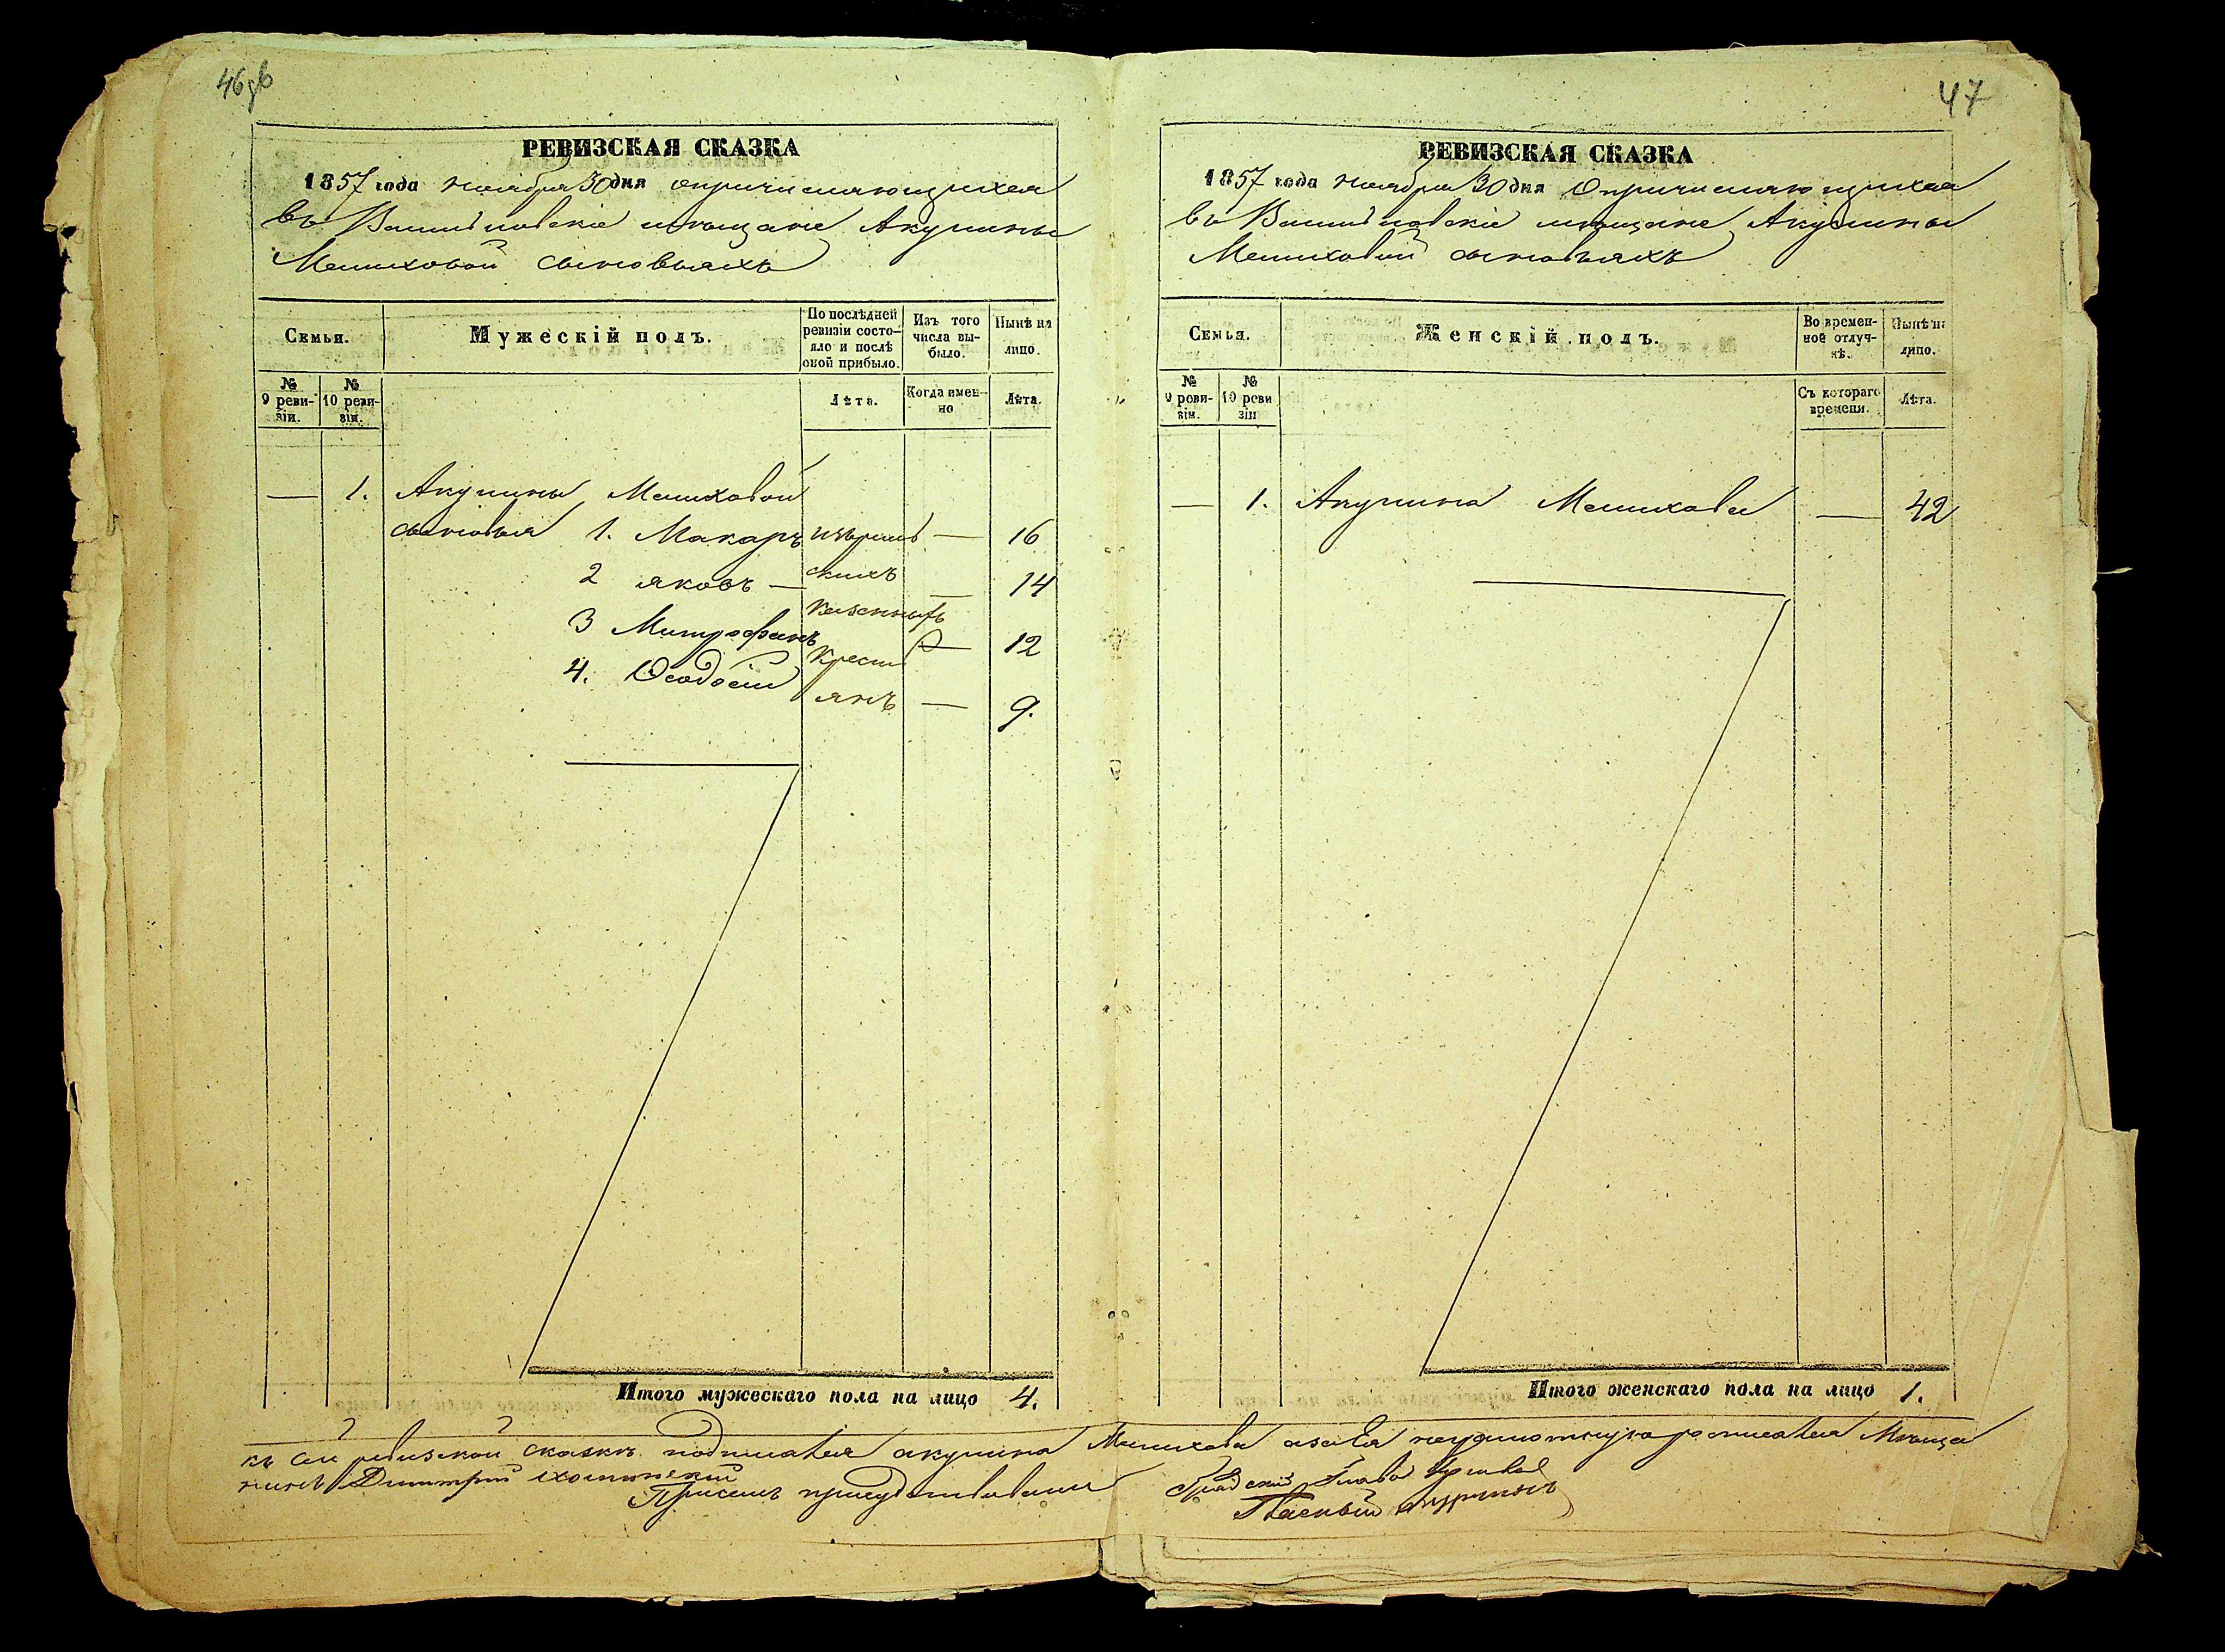 46об
РЕВИЗСКАЯ СКАЗКА
1857 года ноября 30 дня о причисляющихся
въ мѣщане Акулины
Мелиховой сыновьяхъ
Семья.
Мужескій полъ.
По послѣдней ревизіи состо-
яло и послѣ оной прибыло.
Изъ того числа вы-
было.
Нынѣ на лицо.
№ 9 реви-
зіи.
№ 10 реви-
зіи.
Лѣта.
Когда имен-
но
Лѣта.
— 1. Акулины Мелиховой
сыновья 1. Макаръ — 16
2 Яковъ — — 14
казенныхъ
3 Митрофанъ — 12
крест
4. Ѳеодосій янъ — 9.
Итого мужескаго пола на лицо 4.
47
РЕВИЗСКАЯ СКАЗКА
1857 года ноября 30 дня о причисляющихся
въ мѣщане Акулины
Мелиховой сыновьяхъ
Семья.
Женскій полъ.
Во времен-
ной отлуч-
кѣ.
Нынѣ на
лицо.
№ 9 реви-
зіи.
№ 10 реви
зіи
Съ котораго
времени.
Лѣта.
— 1. Акулина Мелихова — 42
Итого женскаго пола на лицо 1.
къ сей ревизской сказкѣ подписался Акулина Мелихова росписался Мѣща
нинъ Дмитрий
При семъ присудствовали Градский Глава
Гласный